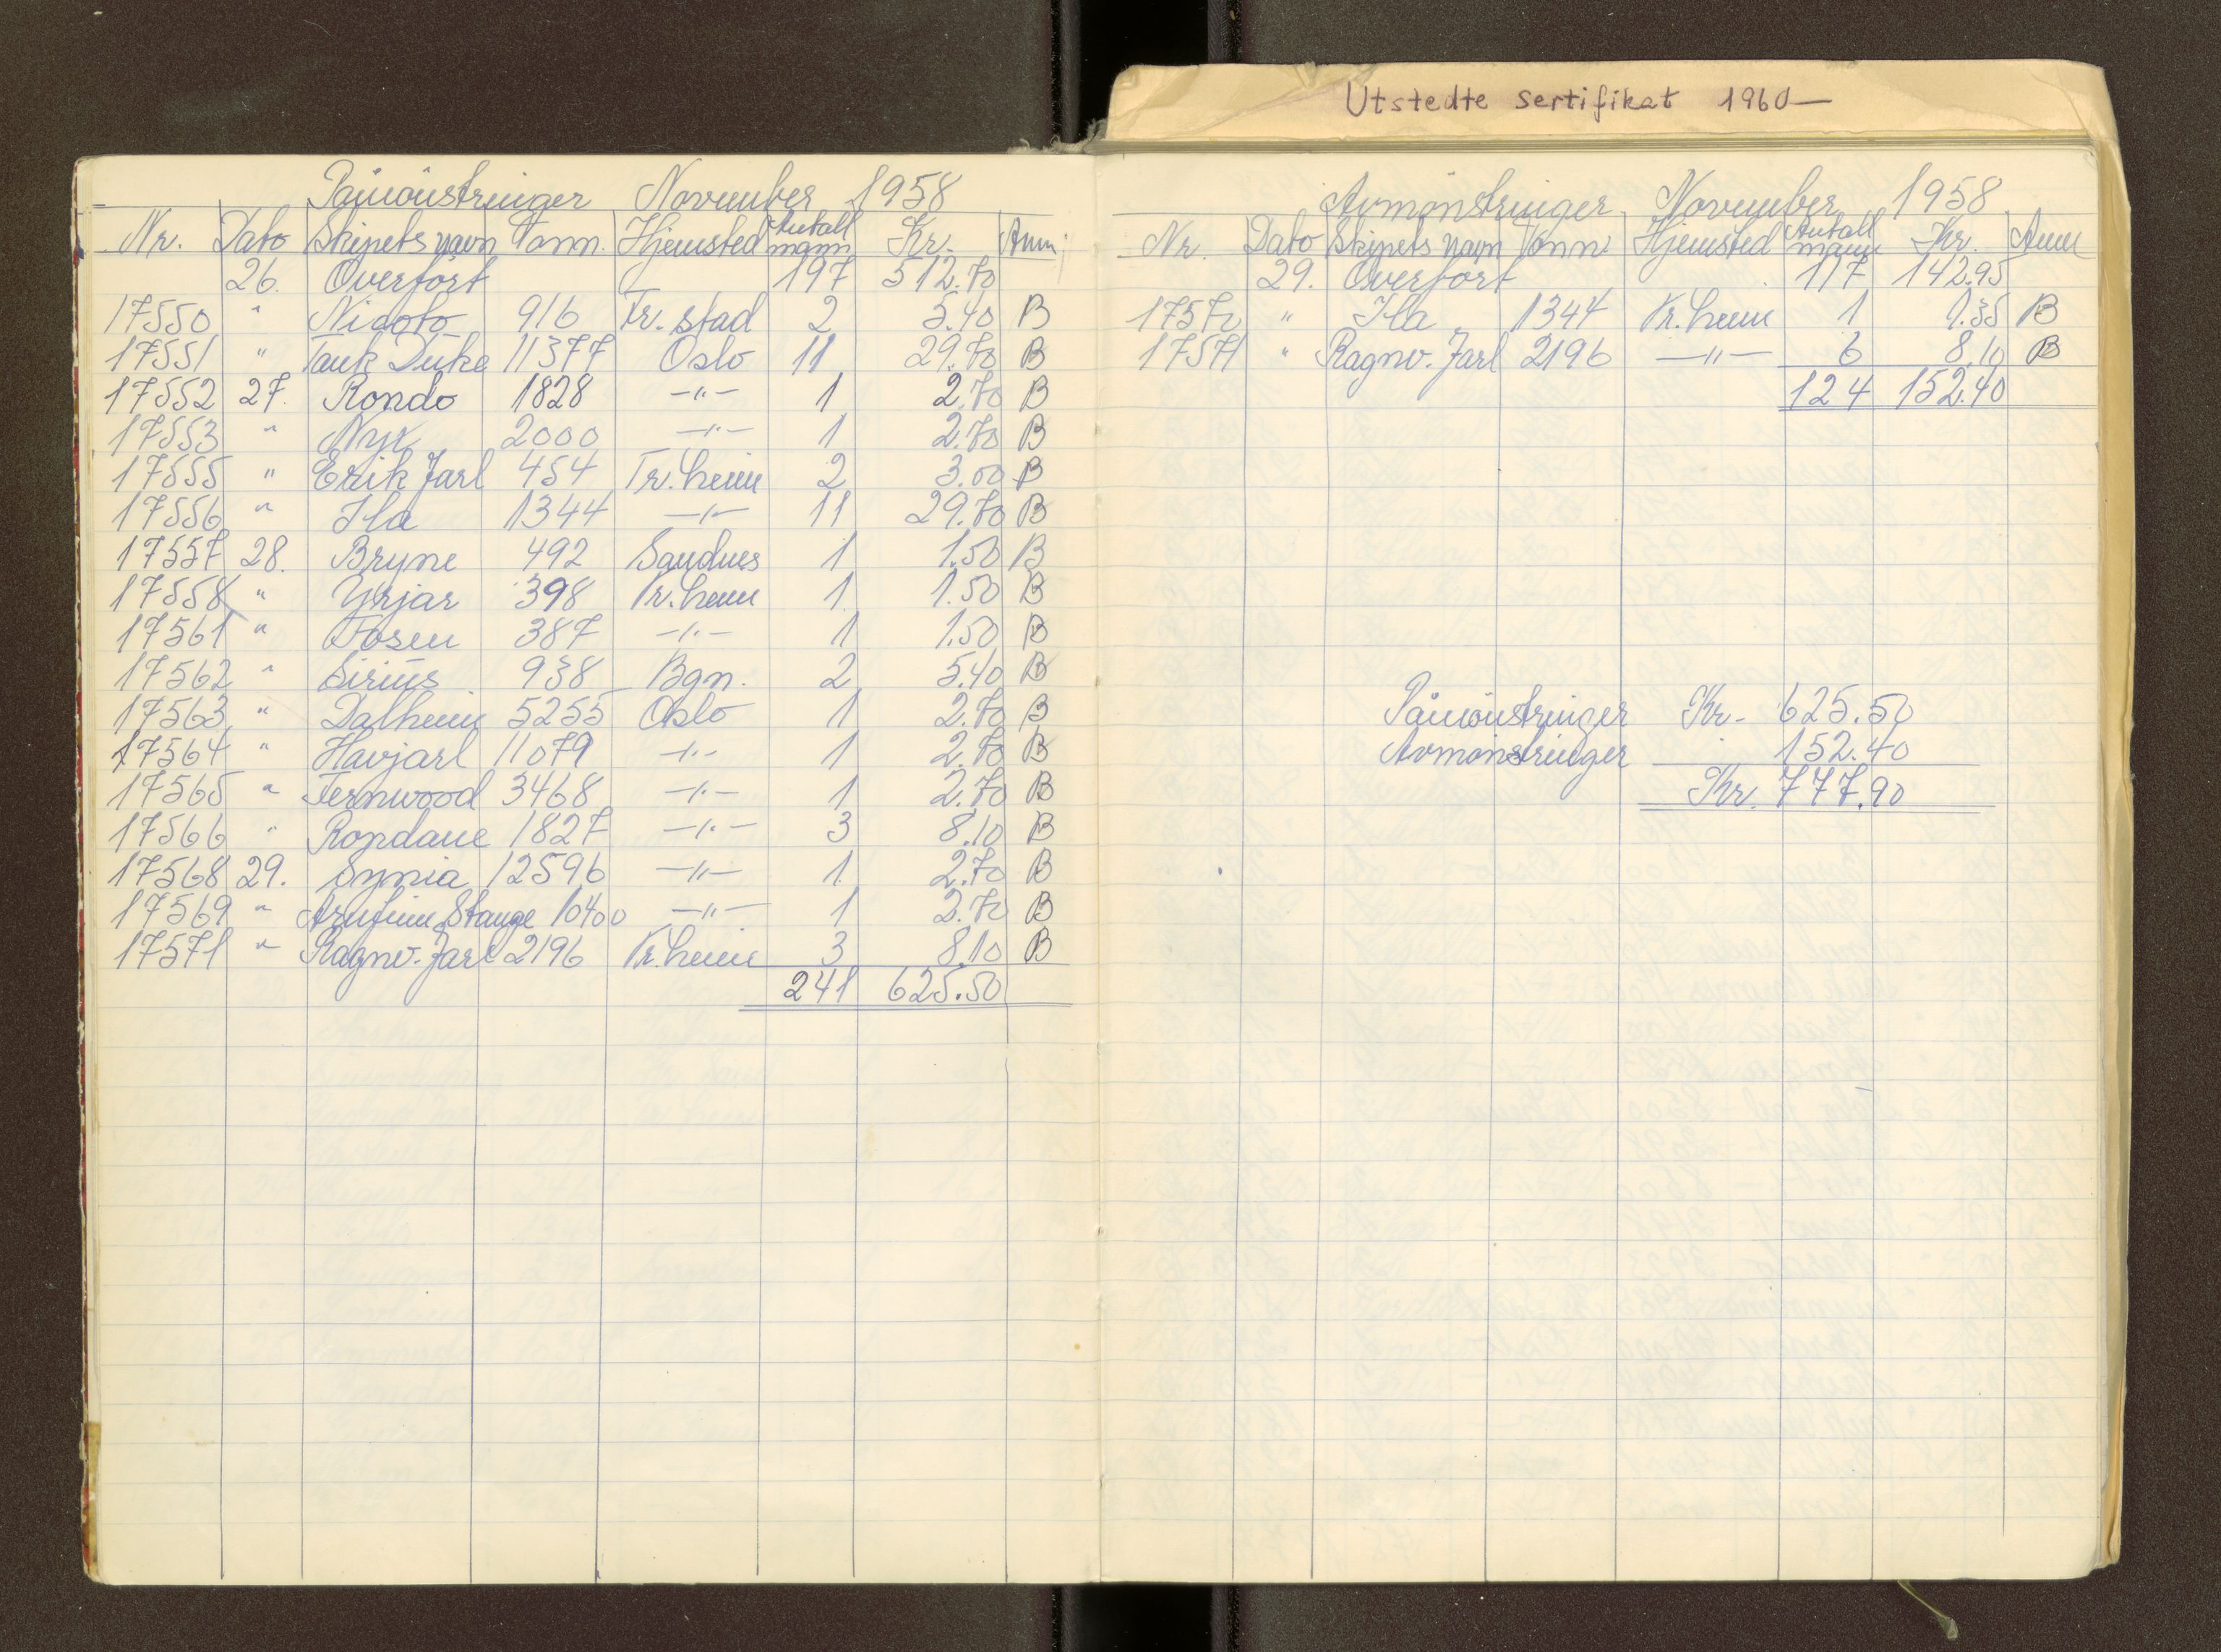 Utstedte sertifikat 1960—
Påmönstringer November 1958
Nr. Dato Skipets navn Tonn. Hjemsted Antall mann Kr. Anm.
26. Overfört 197 512.70
17550 " Nidoto 916 Fr.stad 2 5.40 B
17551 " Tank Duke 11377 Oslo 11 29.70 B
17552 27. Rondo 1828 —"— 1 2.70 B
17553 " Nyx 2000 —"— 1 2.70 B
17555 " Erik Jarl 454 Tr.heim 2 3.00 B
17556 " Ila 1344 —"— 11 29.70 B
17557 28. Bryne 492 Sandnes 1 1.50 B
17558 " Yrjar 398 Tr.heim 1 1.50 B
17561 " Fosen 387 —"— 1 1.50 B
17562 " Sirius 938 Bgn. 2 5.40 B
17563 " Dalheim 5255 Oslo 1 2.70 B
17564 " Havjarl 11079 —"— 1 2.70 B
17565 " Fernwood 3468 —"— 1 2.70 B
17566 " Rondane 1827 —"— 3 8.10 B
17568 29. Synia 12596 —"— 1 2.70 B
17569 " Arnfinn Stange 10400 —"— 1 2.70 B
17571 " Ragnv. Jarl 2196 Tr.heim 3 8.10 B
241 625.50
Avmönstringer November 1958
Nr. Dato Skipets navn Tonn. Hjemsted Antall mann Kr. Anm
29. Overfört 117 142.95
17570 " Ila 1344 Tr.heim 1 1.35 B
17571 " Ragnv. Jarl 2196 —"— 6 8.10 B
124 152.40
Påmönstringer Kr. 625.50
Avmönstringer 152.40
Kr. 777.90